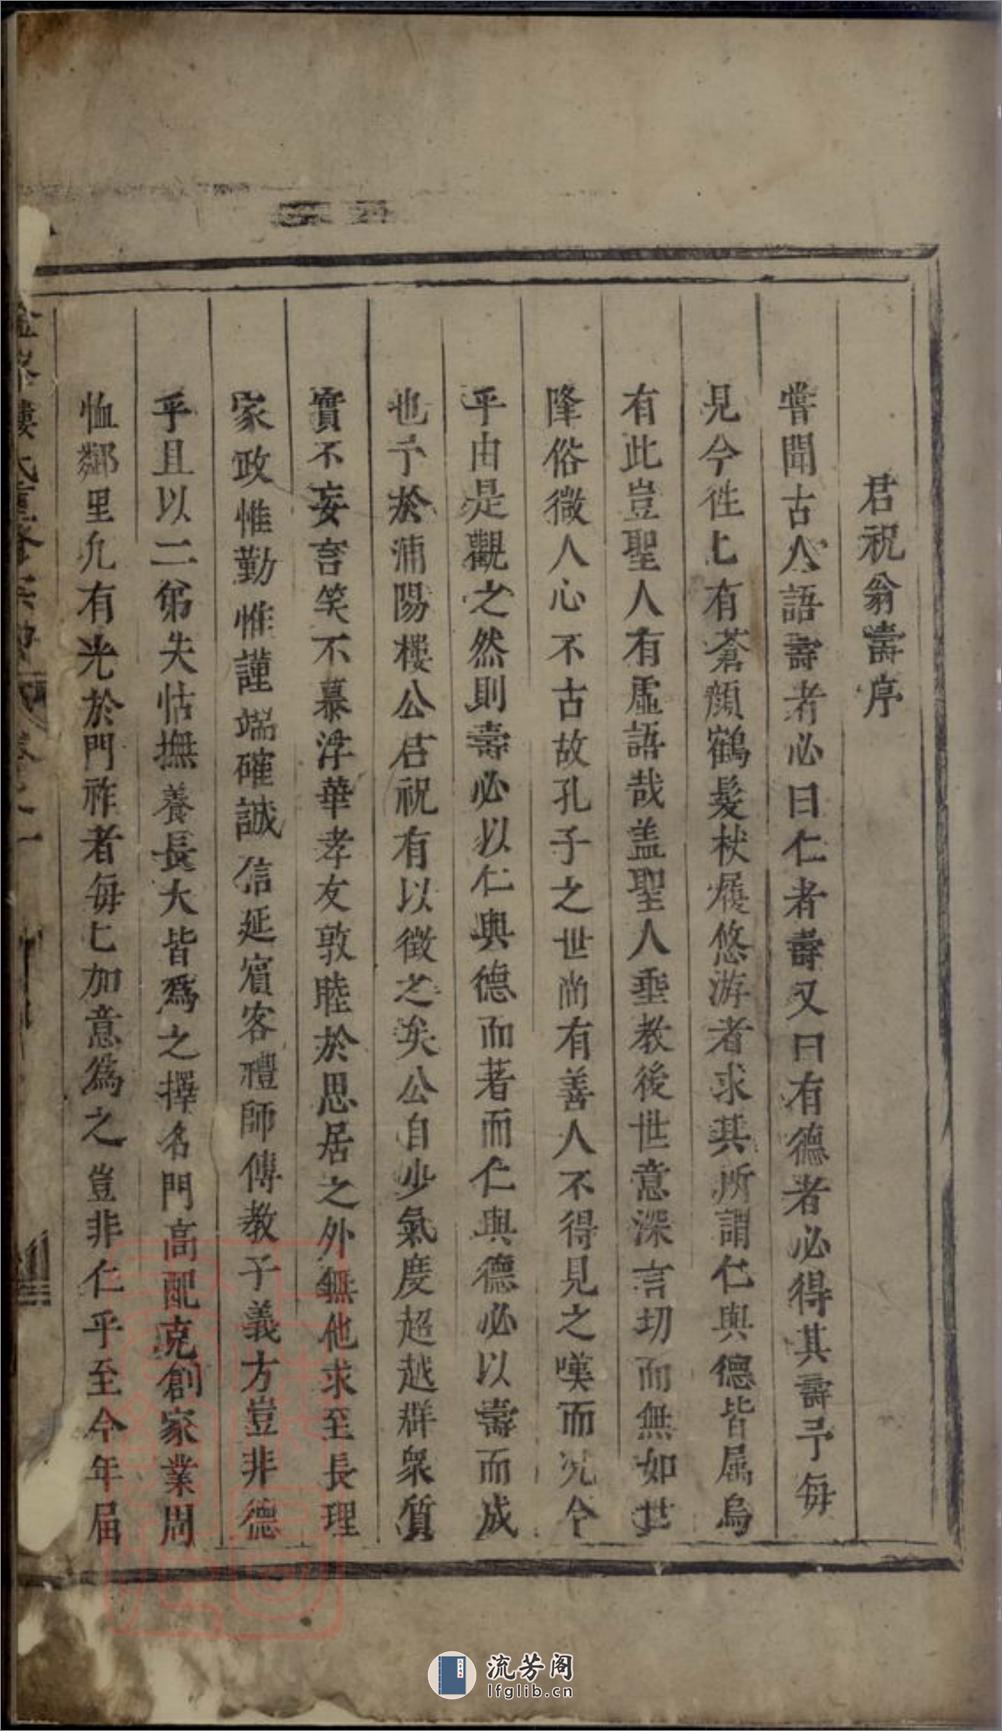 君祝翁壽序
嘗聞古人語壽者必曰仁者壽又曰有德者必得其壽予每
見今徃匕有蒼顏鶴髮杖履悠游者求其所謂仁與德皆属烏
有此豈聖人有虛語哉盖聖人垂教後世意深言切而無如世
降俗微人心不古故孔子之世尚有善人不得見之嘆而况今
乎由是觀之然則壽必以仁與德而著而仁與德必以壽而成
也予於浦陽楼公君祝有以徵之矣公自少氣度超越群衆質
實不妄言笑不慕浮華孝友敦睦於思居之外無他求至長理
家政惟勤惟謹端確誠信延賓客禮師傅教子義方豈非德
乎且以二弟失怙撫養長大皆爲之擇名門高配克創家業周
恤鄰里凢有光於門祚者每匕加意爲之豈非仁乎至今年届
樓氏重修宗譜 卷之一
流芳阁
lfglib.cn